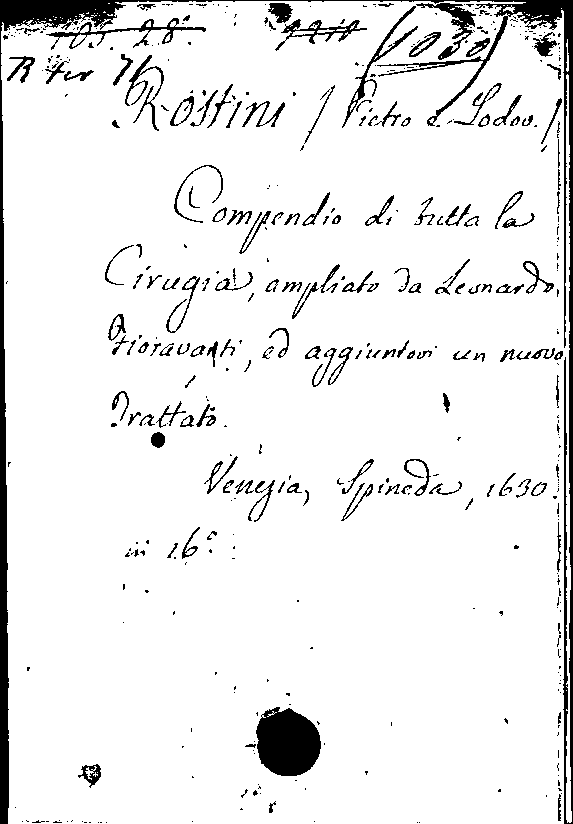 105. 28. 9210 (1030)
R ter 71
Rostini / Pietro e Lodov. /
Compendio di tutta la
Cirugia, ampliato da Leonardo
Fioravanti, ed aggiuntovi un nuovo
Trattato.
Venezia, Spineda, 1630.
in 16°.